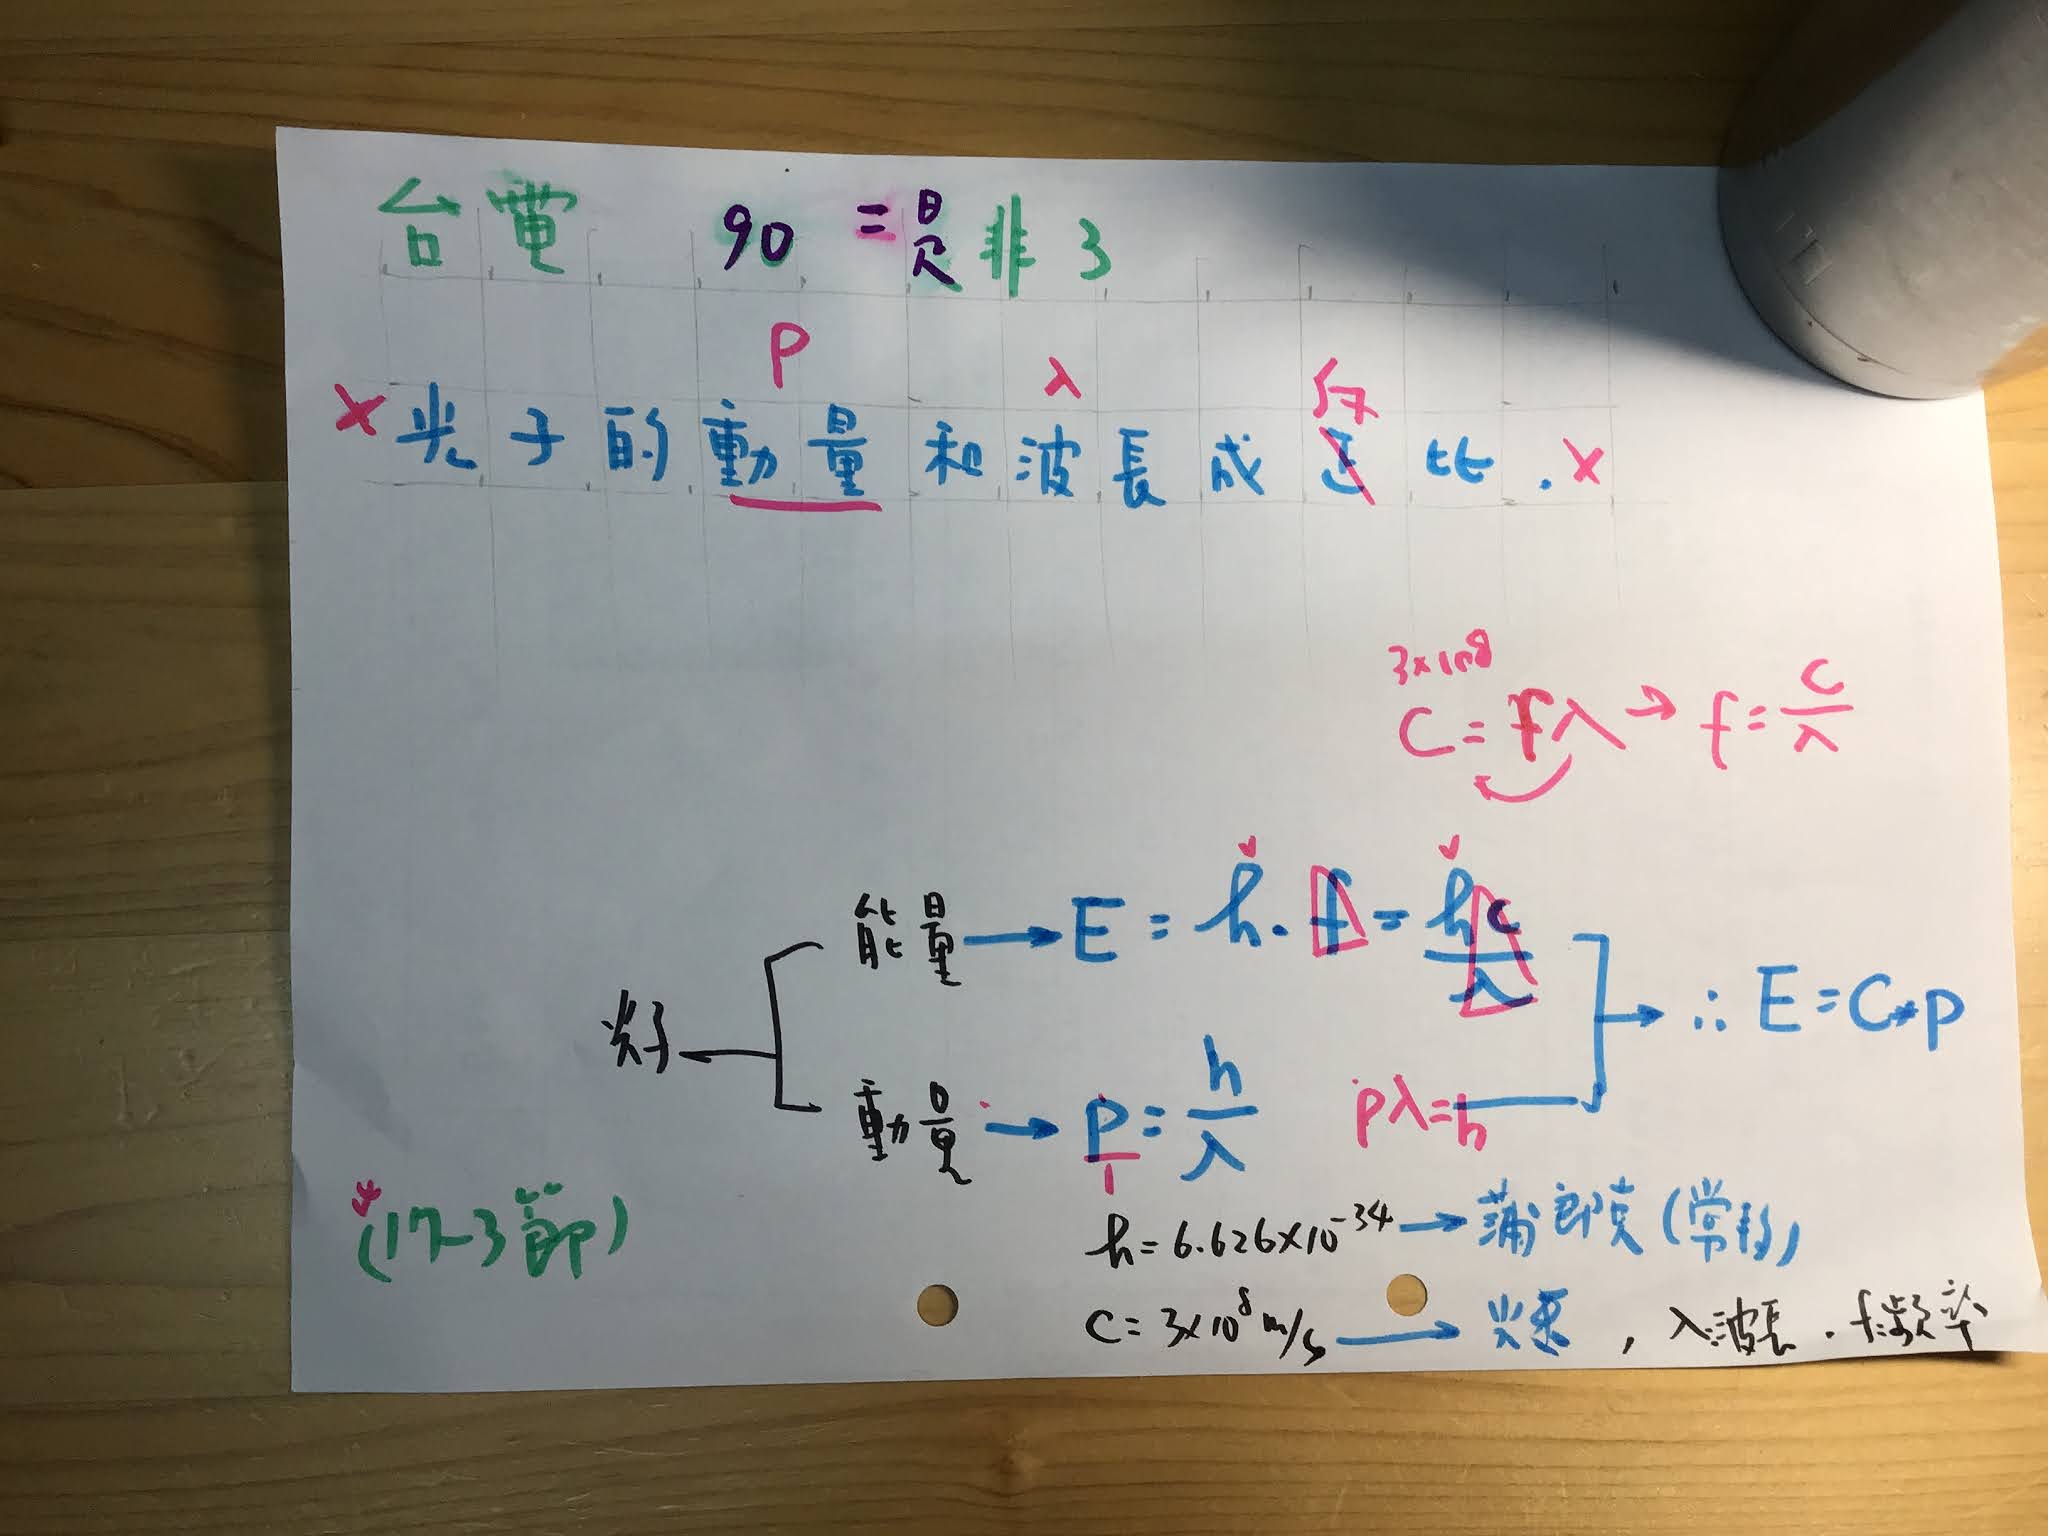 台電 90 = 是非 3
P λ 反
× 光子的動量和波長成正比. ×
3×10⁸
C = fλ → f = c/λ
能量 → E = h · f = hc/λ
光子 ∴ E = C · P
動量 → P = h/λ Pλ = h
(17-3節) h = 6.626×10⁻³⁴ → 蒲郎克(常數)
C = 3×10⁸ m/s → 光速, λ:波長. f:頻率